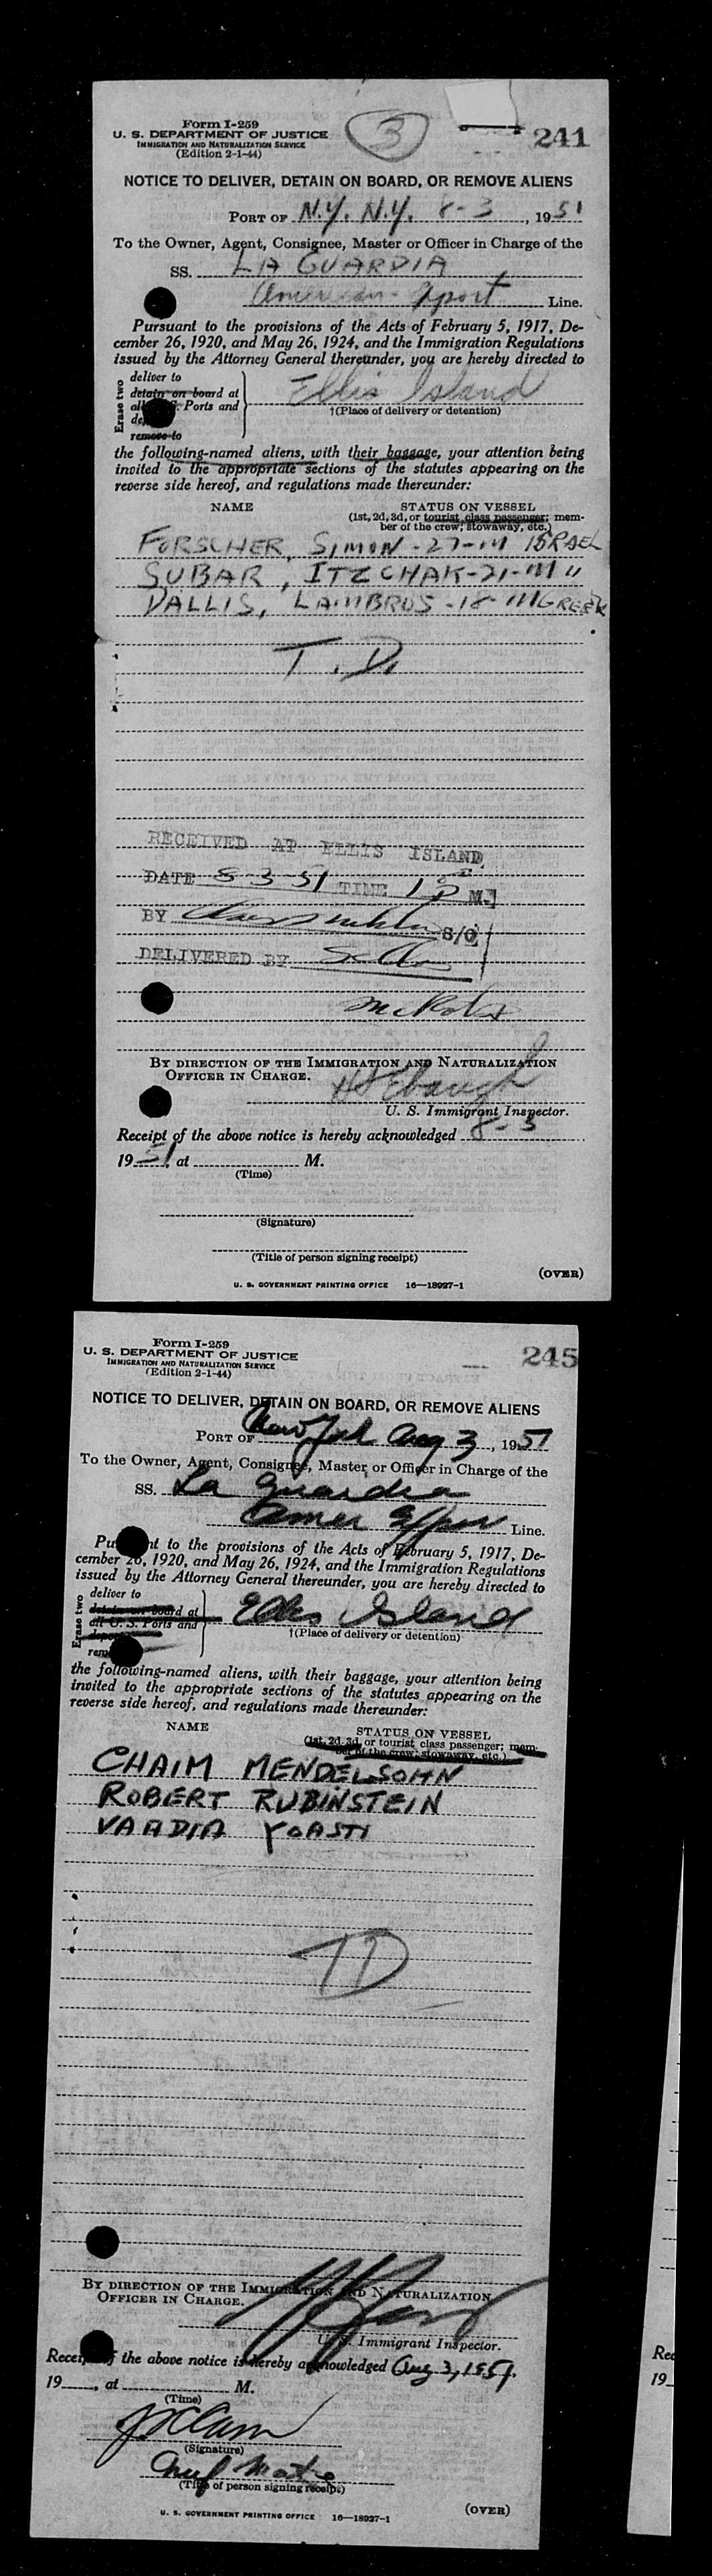 Form I-259
U. S. DEPARTMENT OF JUSTICE
IMMIGRATION AND NATURALIZATION SERVICE
(Edition 2-1-44)
3
241
NOTICE TO DELIVER, DETAIN ON BOARD, OR REMOVE ALIENS
PORT OF N.Y. N.Y. 8-3, 1951
To the Owner, Agent, Consignee, Master or Officer in Charge of the
SS. LA GUARDIA
American Export Line.
Pursuant to the provisions of the Acts of February 5, 1917, De-
cember 26, 1920, and May 26, 1924, and the Immigration Regulations
issued by the Attorney General thereunder, you are hereby directed to
Erase two
deliver to
detain on board at
all Ports and
remove to
Ellis Island
†(Place of delivery or detention)
the following-named aliens, with their baggage, your attention being
invited to the appropriate sections of the statutes appearing on the
reverse side hereof, and regulations made thereunder:
NAME STATUS ON VESSEL
(1st, 2d, 3d, or tourist class passenger; mem-
ber of the crew; stowaway, etc.)
FORSCHER, SIMON - 27-M ISRAEL
SUBAR, ITZCHAK-21-M "
VALLIS, LAMBROS - 18- M GREEK
T. D.
RECEIVED AT ELLIS ISLAND
DATE 8-3-51 TIME 1 P M.
BY S/O
DELIVERED BY
BY DIRECTION OF THE IMMIGRATION AND NATURALIZATION
OFFICER IN CHARGE.
U. S. Immigrant Inspector.
Receipt of the above notice is hereby acknowledged 8-3
1951, at M.
(Time)
(Signature)
(Title of person signing receipt)
(OVER)
U. S. GOVERNMENT PRINTING OFFICE 16—18927-1
Form I-259
U. S. DEPARTMENT OF JUSTICE
IMMIGRATION AND NATURALIZATION SERVICE
(Edition 2-1-44)
245
NOTICE TO DELIVER, DETAIN ON BOARD, OR REMOVE ALIENS
PORT OF New York Aug 3, 1951
To the Owner, Agent, Consignee, Master or Officer in Charge of the
SS. La Guardia
Amer Export Line.
to the provisions of the Acts of February 5, 1917, De-
cember 26, 1920, and May 26, 1924, and the Immigration Regulations
issued by the Attorney General thereunder, you are hereby directed to
Erase two
deliver to
detain on board at
all U. S. Ports and
Ellis Island
†(Place of delivery or detention)
the following-named aliens, with their baggage, your attention being
invited to the appropriate sections of the statutes appearing on the
reverse side hereof, and regulations made thereunder:
NAME STATUS ON VESSEL
(1st, 2d, 3d, or tourist class passenger; mem-
ber of the crew; stowaway, etc.)
CHAIM MENDELSOHN
ROBERT RUBINSTEIN
VAADIA YOASH
TD
BY DIRECTION OF THE IMMIGRATION AND NATURALIZATION
OFFICER IN CHARGE.
U. S. Immigrant Inspector.
the above notice is hereby acknowledged Aug 3, 1951.
19, at M.
(Time)
(Signature)
(Title of person signing receipt)
(OVER)
U. S. GOVERNMENT PRINTING OFFICE 16—18927-1
Rec
19